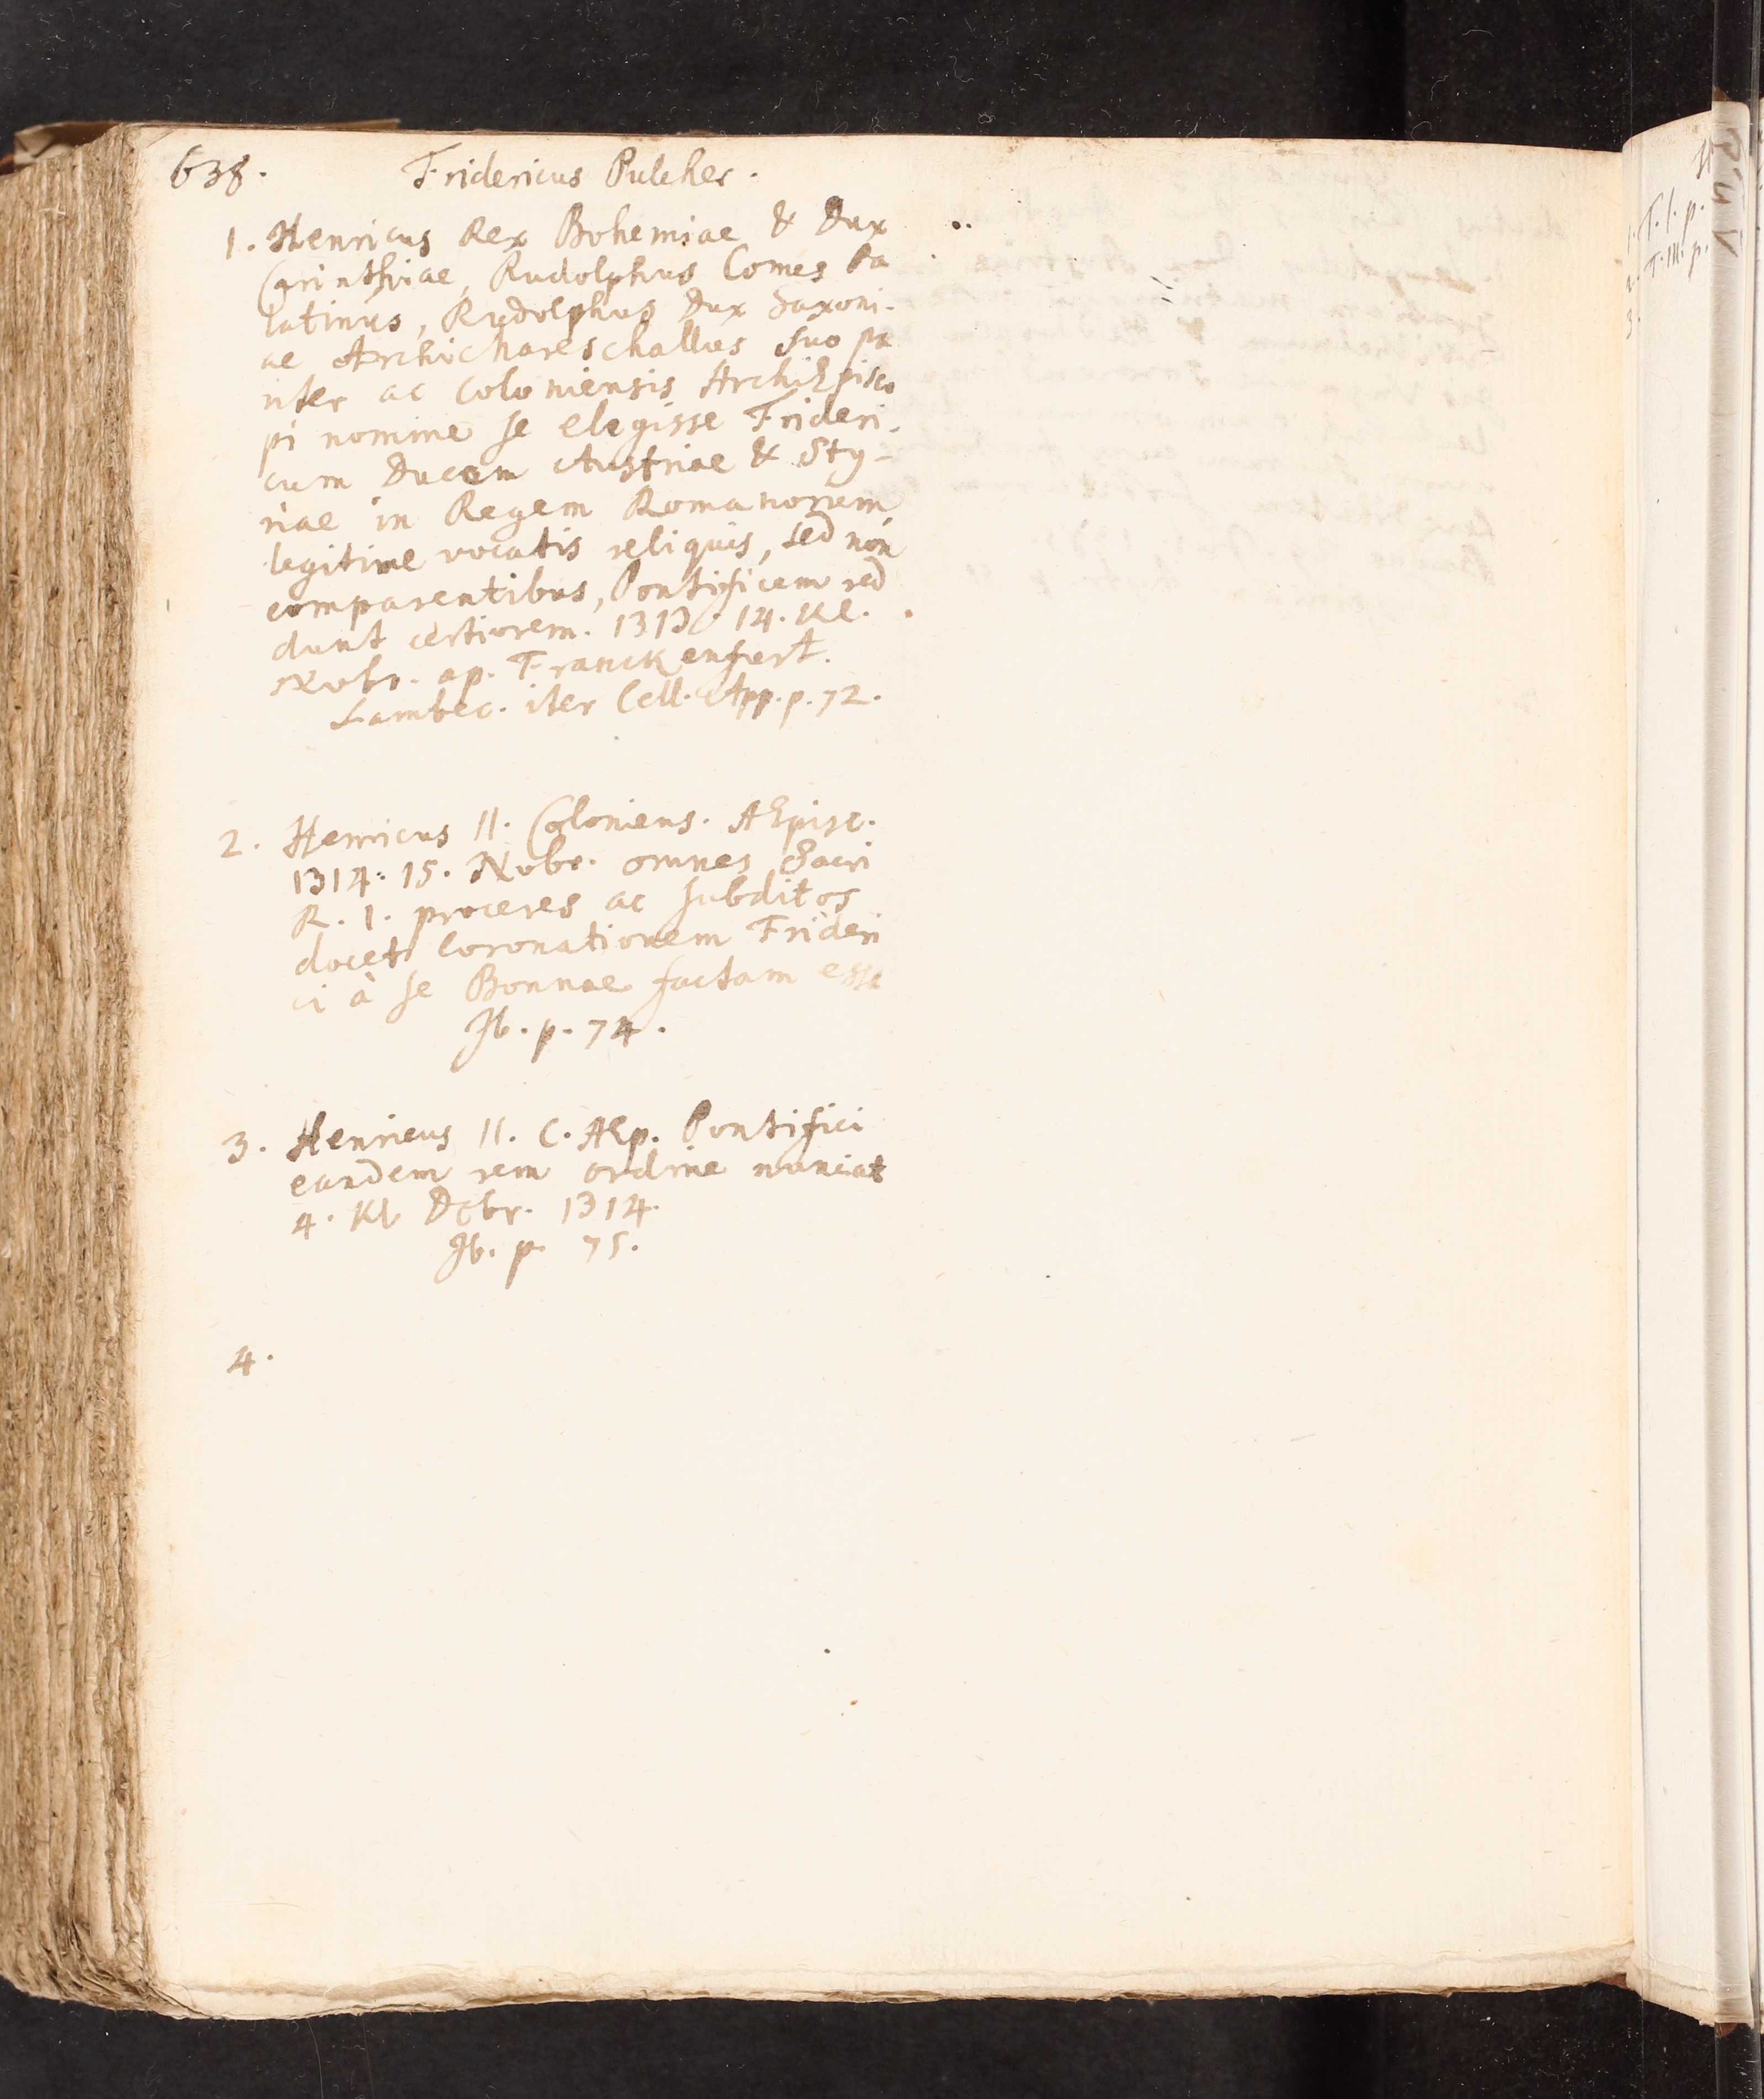 638. Fridericus Pulcher.
1. Henricus Rex Bohemiae & Dux
Carinthiae, Rudolphus Comes Pa
latinus, Rudolphus Dux Saxoni-
ae Archimareschallus suo pa
riter ac Coloniensis ArchiEpisco
pi nomine se elegisse Frideri-
cum Ducem Austriae & Sty-
riae in Regem Romanorum,
legitime vocatis reliquis, sed non
comparentibus, Pontificem red
dunt certiorem. 14. Kl.
Nobr. ap. Franckenfurt.
Lambec. iter Cell. App. p. 72.
2. Henricus II. Coloniens. AEpisc.
1314. 15. Nobr. omnes Sacri
R. I. proceres ac subditos
docet Coronationem Frideri
ci à se Bonnae factam esse
Ib. p. 74.
3. Henricus II. C. AEp. Pontifici
eandem rem ordine nunciat
4. Kl Dcbr. 1314.
Ib. p. 75.
4.
1. T. I. p.
2. T. III. p.
3.